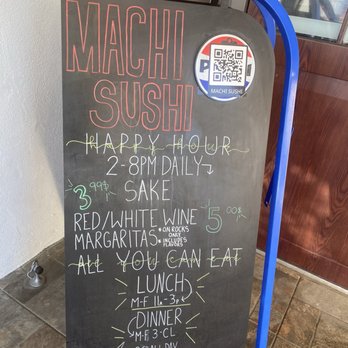 MACHI
SUSHI
MACHI SUSHI
HAPPY HOUR
2-8PM DAILY
3.99$ SAKE
RED/WHITE WINE 5.00$
MARGARITAS *ON ROCKS ONLY *INCLUDES FLAVORS
ALL YOU CAN EAT
LUNCH
M-F 11a-3p
DINNER
M-F 3-CL
ALL DAY